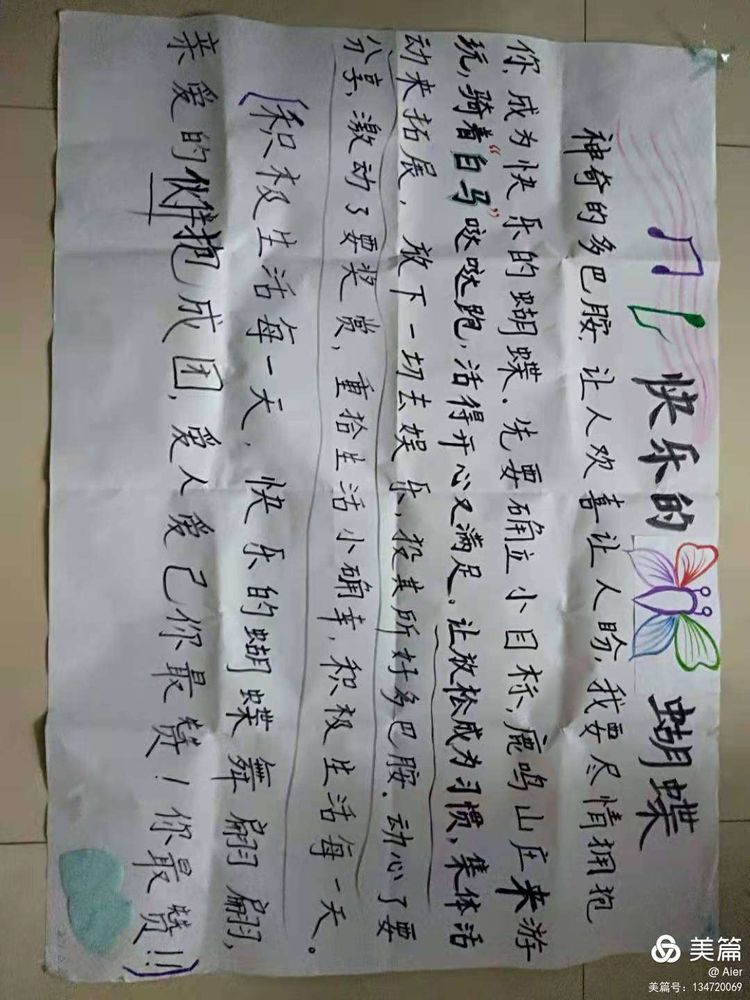 快乐的 蝴蝶
神奇的多巴胺,让人欢喜让人盼,我要尽情拥抱
你,成为快乐的蝴蝶。先要确立小目标,鹿鸣山庄来游
玩,骑着“白马”哒哒跑,活得开心又满足,让放松成为习惯,集体活
动来拓展,放下一切去娱乐,投其所好多巴胺。动心了要
分享,激动了要奖赏,重拾生活小确幸,积极生活每一天。
(积极生活每一天,快乐的蝴蝶舞翩翩,
亲爱的伙伴抱成团,爱人爱己你最赞!你最赞!!)
美篇
@ Aier
美篇号:134720069